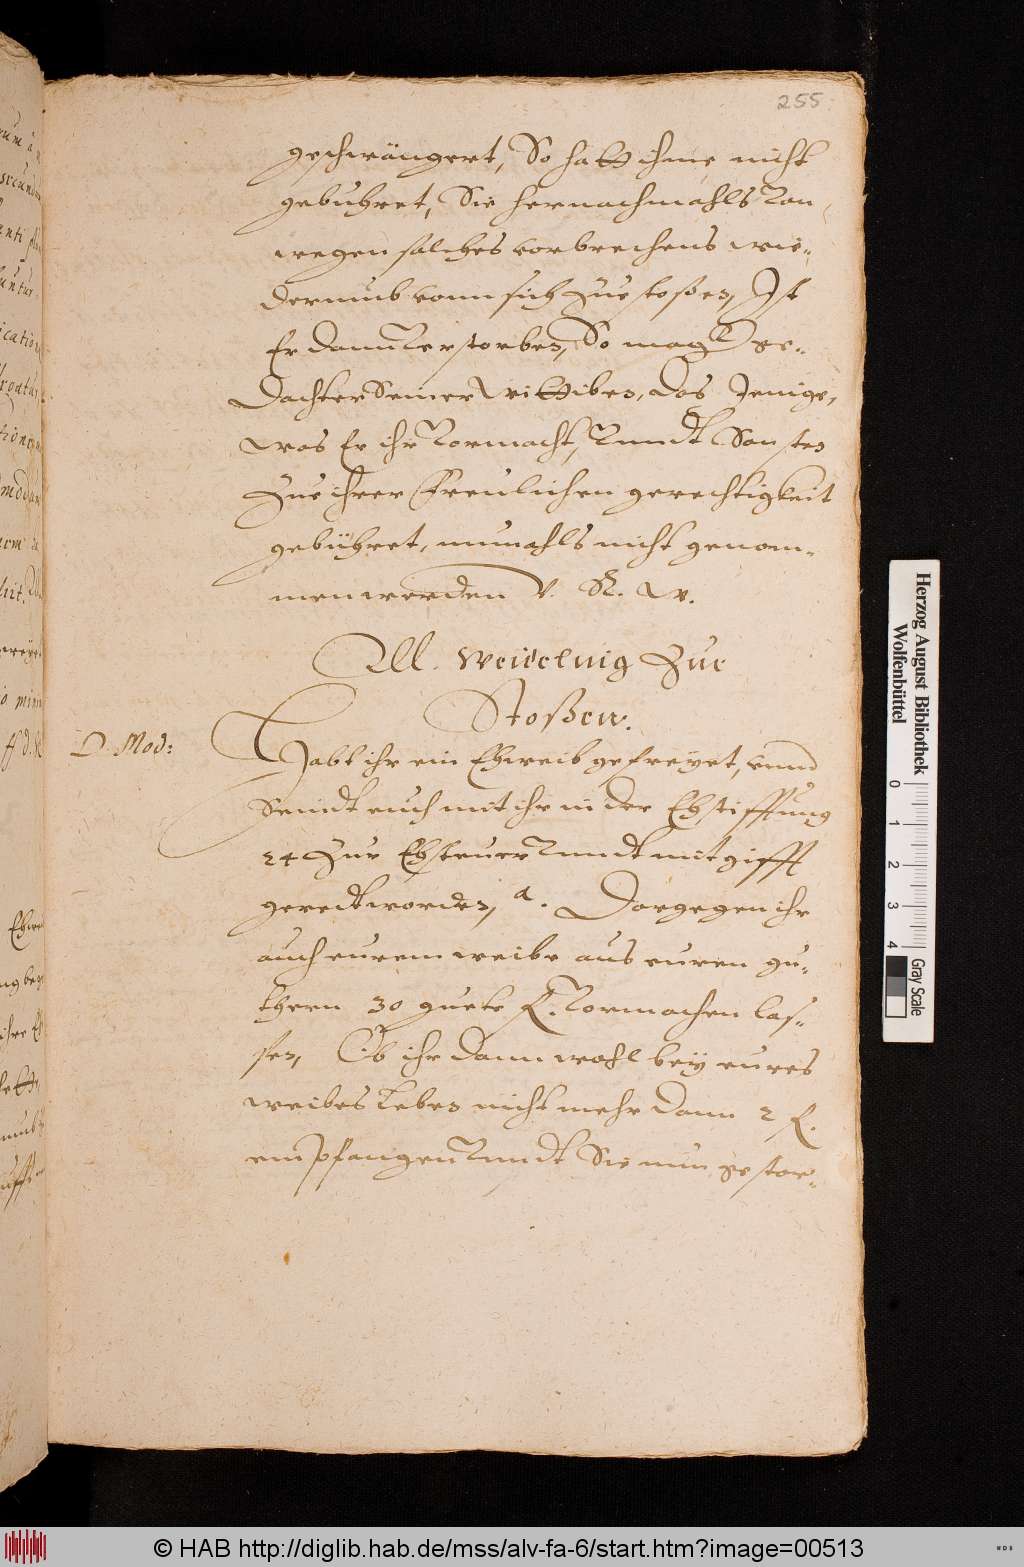 255.
geschwängert, So hatt ihme nicht
gebuhret, Sie hernachmahls von
wegen solches vorbrechens wie-
derumb vonn sich zue stoßen, Ist
Er dann verstorben, So mag ge-
dachter Seiner wittiben, das Jenige,
was Er ihr vormacht, vnndt Sonsten
zue ihrer Freulichen gerechtigkeit
gebühret, nicht genom-
men werden V. R. W.
zue
Stoßen.
D. Mod:
Habt ihr ein Eheweib gefreyet, vnnd
Seindt euch mit ihr in der Ehstifftung
24 zur Ehsteuer vnndt mitgifft
geredt worden, a. Dargegen ihr
auch eurem weibe aus euren gu-
thern 30 guete f. vormachen las-
sen, Ob ihr dann wohl bey eures
weibes Leben nicht mehr dann 2 f.
empfangen vnndt Sie nun gestor-
Herzog August Bibliothek
Wolfenbüttel
0 1 2 3 4
Gray Scale
© HAB http://diglib.hab.de/mss/alv-fa-6/start.htm?image=00513